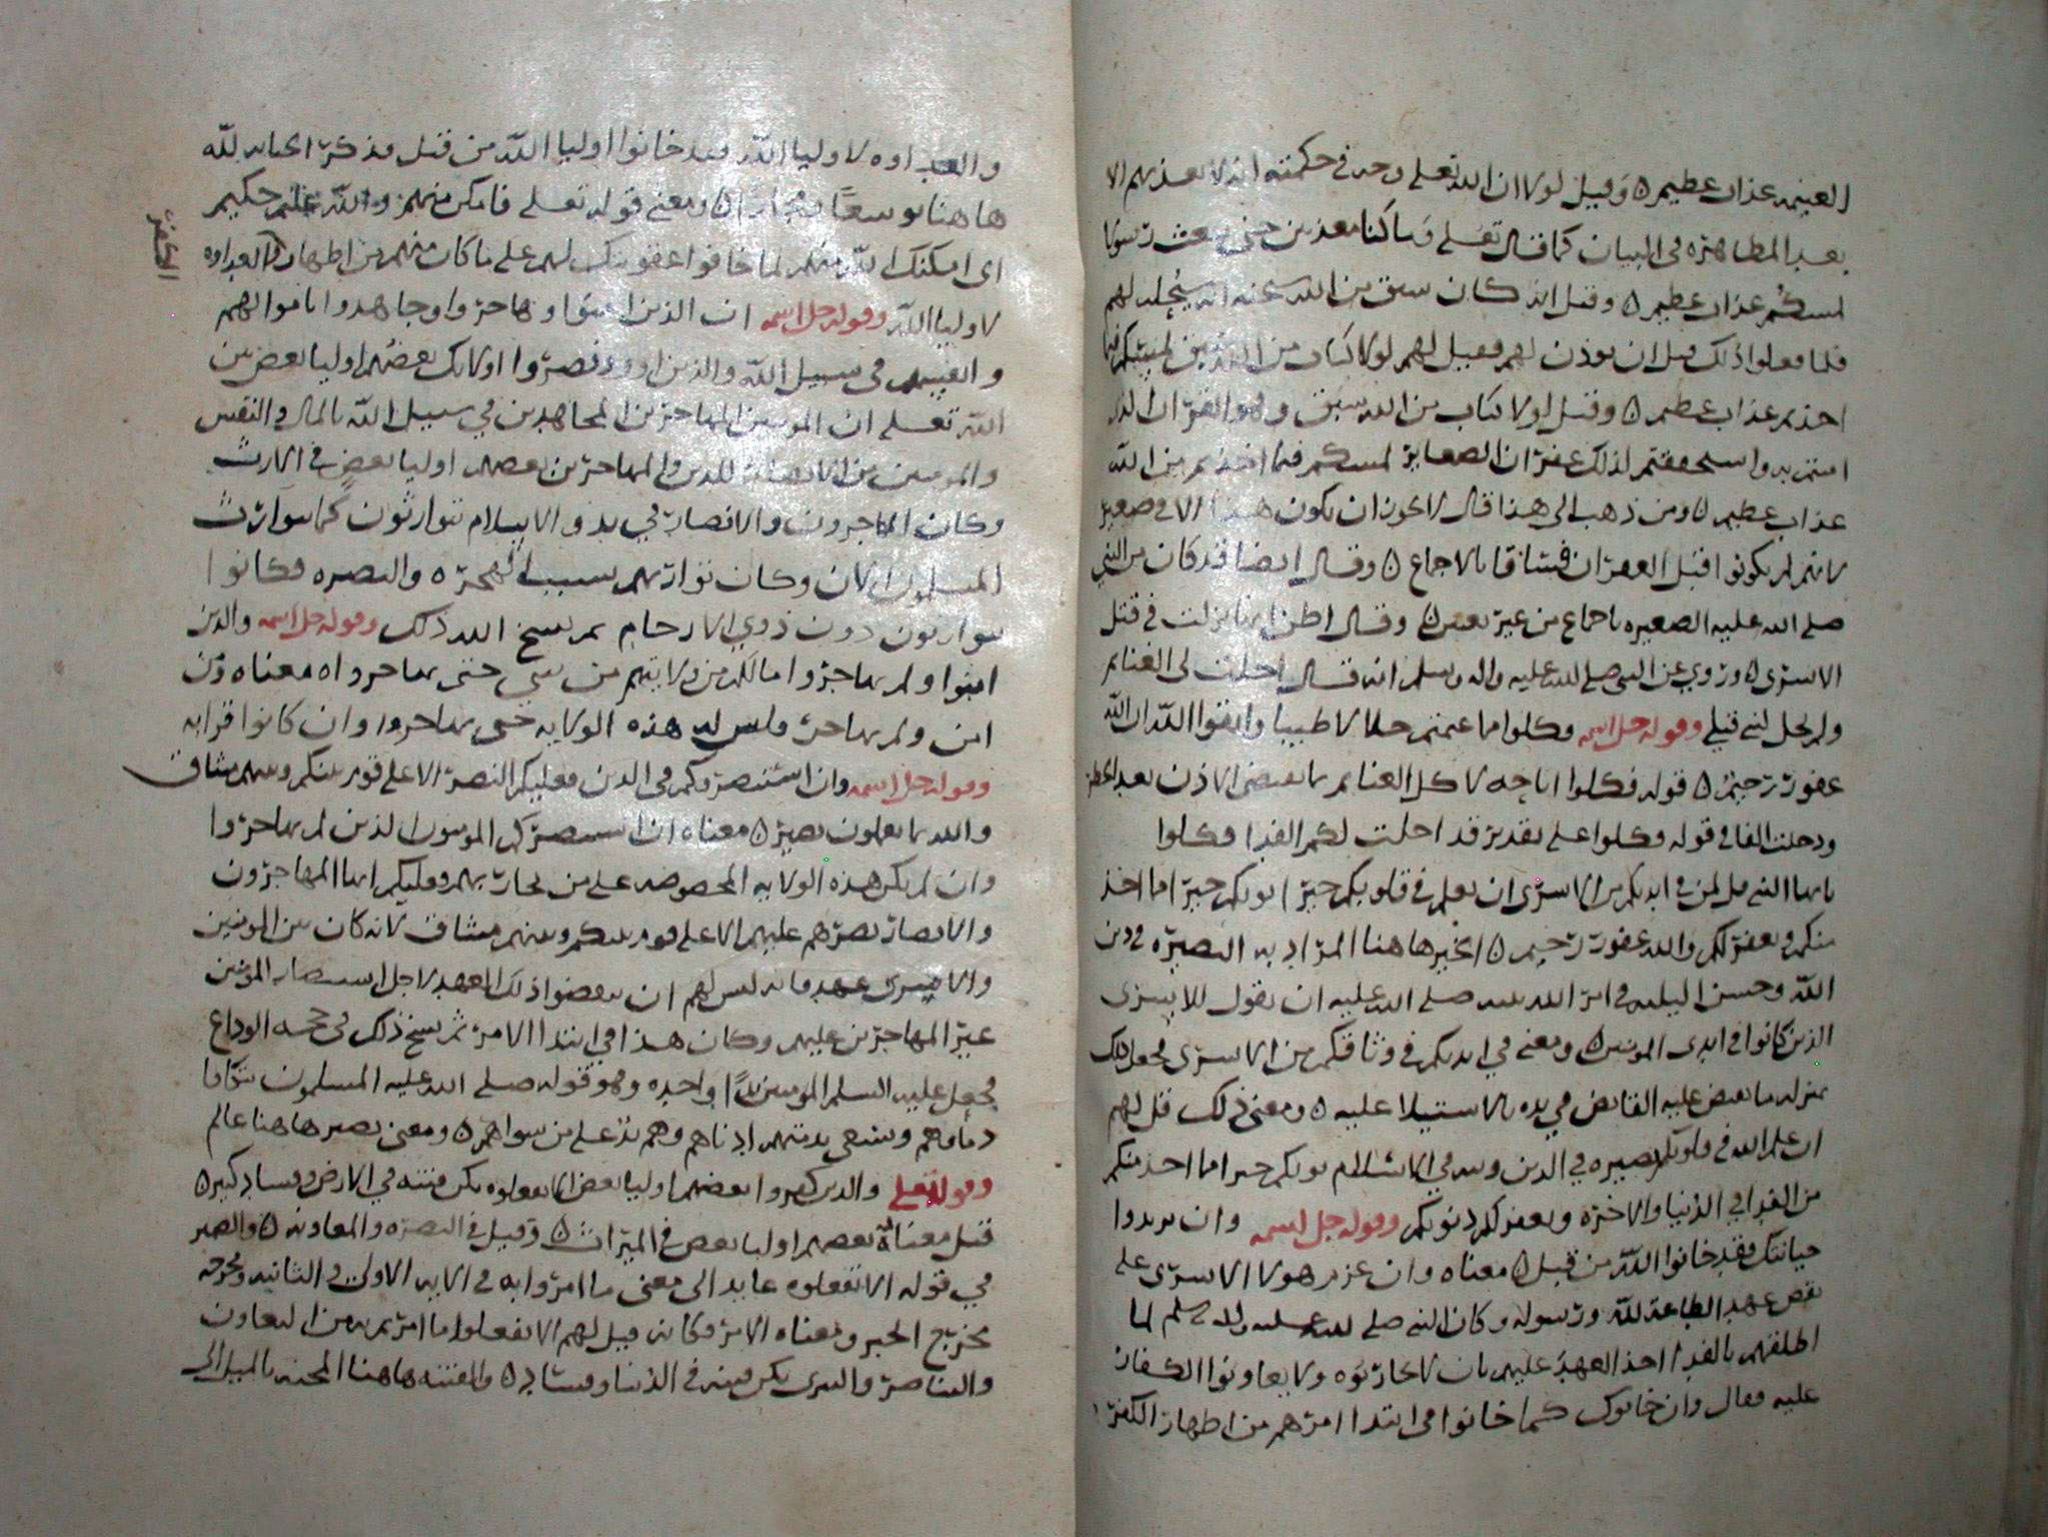 الغنيمه عذاب عظيم ٥ وقيل لولا ان الله تعلى وحد في حكمته انه لا يعذبهم الا
بعد المظاهره في البيان كما قال تعلى وما كنا معذبين حتى نبعث رسولا
لمسكم عذاب عظيم ٥ وقيل انه كان سبق من الله عنه انه سيحله لهم
فلما فعلوا ذلك قبل ان يوذن لهم فقيل لهم لولا كتاب من الله سبق لمسكم فيما
اخذتم عذاب عظيم ٥ وقيل لولا كتاب من الله سبق وهو القران الذي
امنتم به واستحققتم لذلك غفران الصغاير لمسكم فيما اخذتم من الله
عذاب عظيم ٥ ومن ذهب الى هذا قال لا يجوز ان يكون هذا الا في صغير
لانهم لم يكونوا قبل الغفران فساقا بالاجماع ٥ وقال ايضا قد كان من النبي
صلى الله عليه الصغيره باجماع من غير تعيين ٥ وقال اظن انها نزلت في قتل
الاسرى ٥ وروي عن النبي صلى الله عليه واله وسلم انه قال احلت لي الغنايم
ولم تحل لنبي قبلي وقوله جل اسمه فكلوا مما غنمتم حلالا طيبا واتقوا الله ان الله
غفور رحيم ٥ قوله فكلوا اباحه لاكل الغنايم بما يقتضي الاذن بعد الحظر
ودخلت الفا في قوله فكلوا على تقدير قد احلت لكم الفدا فكلوا
يايها النبي قل لمن في ايديكم من الاسرى ان يعلم في قلوبكم خيرا يوتكم خيرا مما اخذ
منكم ويغفر لكم والله غفور رحيم ٥ الخير هاهنا المراد به البصيره في دين
الله وحسن النيه في امر الله نبيه صلى الله عليه ان يقول للاسرى
الذين كانوا في ايدي المومنين ٥ ومعنى في ايديكم في وثاقكم من الاسرى فجعل ذلك
بمنزله ما يقبض عليه القابض في يده بالاستيلا عليه ٥ ومعنى ذلك قل لهم
ان علم الله في قلوبكم بصيره في الدين ونيه في الاسلام يوتكم خيرا مما اخذ منكم
من الفدا في الدنيا والاخره ويغفر لكم ذنوبكم وقوله جل اسمه وان يريدوا
خيانتك فقد خانوا الله من قبل ٥ معناه وان عزم هولا الاسرى على
نقض عهد الطاعة لله ورسوله وكان النبي صلى الله عليه واله وسلم لما
اطلقهم بالفدا اخذ العهد عليهم بان لا يحاربوه ولا يعاونوا الكفار
عليه فقال وان خانوك كما خانوا في ابتدا امرهم من اظهار الكفر
والعداوه لاوليا الله فقد خانوا اوليا الله من قبل فذكر الخيانه لله
هاهنا توسعا ومجازا ٥ ومعنى قوله تعلى فامكن منهم والله عليم حكيم
اي امكنك الله منهم لما خافوا عقوبتك لهم على ما كان منهم من اظهار العداوه
الكفر
لاوليا الله وقوله جل اسمه ان الذين امنوا وهاجروا وجاهدوا باموالهم
وانفسهم في سبيل الله والذين اووا ونصروا اولايك بعضهم اوليا بعض بين
الله تعلى ان المومنين المهاجرين المجاهدين في سبيل الله بالمال والنفس
والمومنين من الانصار للدين والمهاجرين بعضهم اوليا بعض في الارث
وكان المهاجرون والانصار في بدو الاسلام يتوارثون كما يتوارث
المسلمون الان وكان توارثهم بسبب الهجره والنصره فكانوا
يتوارثون دون ذوي الارحام ثم نسخ الله ذلك وقوله جل اسمه والذين
امنوا ولم يهاجروا ما لكم من ولايتهم من شي حتى يهاجروا ٥ معناه ومن
امن ولم يهاجر فليس له هذه الولايه حتى يهاجروا وان كانوا قرابه
وقوله جل اسمه وان استنصروكم في الدين فعليكم النصر الا على قوم بينكم وبينهم ميثاق
والله بما تعملون بصير ٥ معناه ان استنصركم المومنون الذين لم يهاجروا
وان لم يكن هذه الولايه المخصوصه على من يحاربهم فعليكم ايها المهاجرون
والانصار نصرهم عليهم الا على قوم بينكم وبينهم ميثاق لانه كان بين المومنين
والاسرى عهد فانه ليس لهم ان ينقضوا ذلك العهد لاجل استنصار المومنين
غير المهاجرين عليهم وكان هذا في ابتدا الامر ثم نسخ ذلك في حجه الوداع
فجعل عليه السلم المومنين يدا واحده وهو قوله صلى الله عليه المسلمون تتكافا
دماوهم ويسعى بذمتهم ادناهم وهم يد على من سواهم ٥ ومعنى بصير هاهنا عالم
وقوله تعلى والذين كفروا بعضهم اوليا بعض الا تفعلوه تكن فتنه في الارض وفساد كبير ٥
قيل معناه بعضهم اوليا بعض في الميراث ٥ وقيل في النصره والمعاونه ٥ والضمير
في قوله الا تفعلوه عايد الى معنى ما امروا به في الايه الاولى والثانيه ومخرجه
مخرج الخبر ومعناه الامر فكانه قيل لهم الا تفعلوا ما امرتم به من التعاون
والتناصر والبرى تكن فتنه في الدنيا وفساد ٥ والفتنه هاهنا المحنه بالميل الى